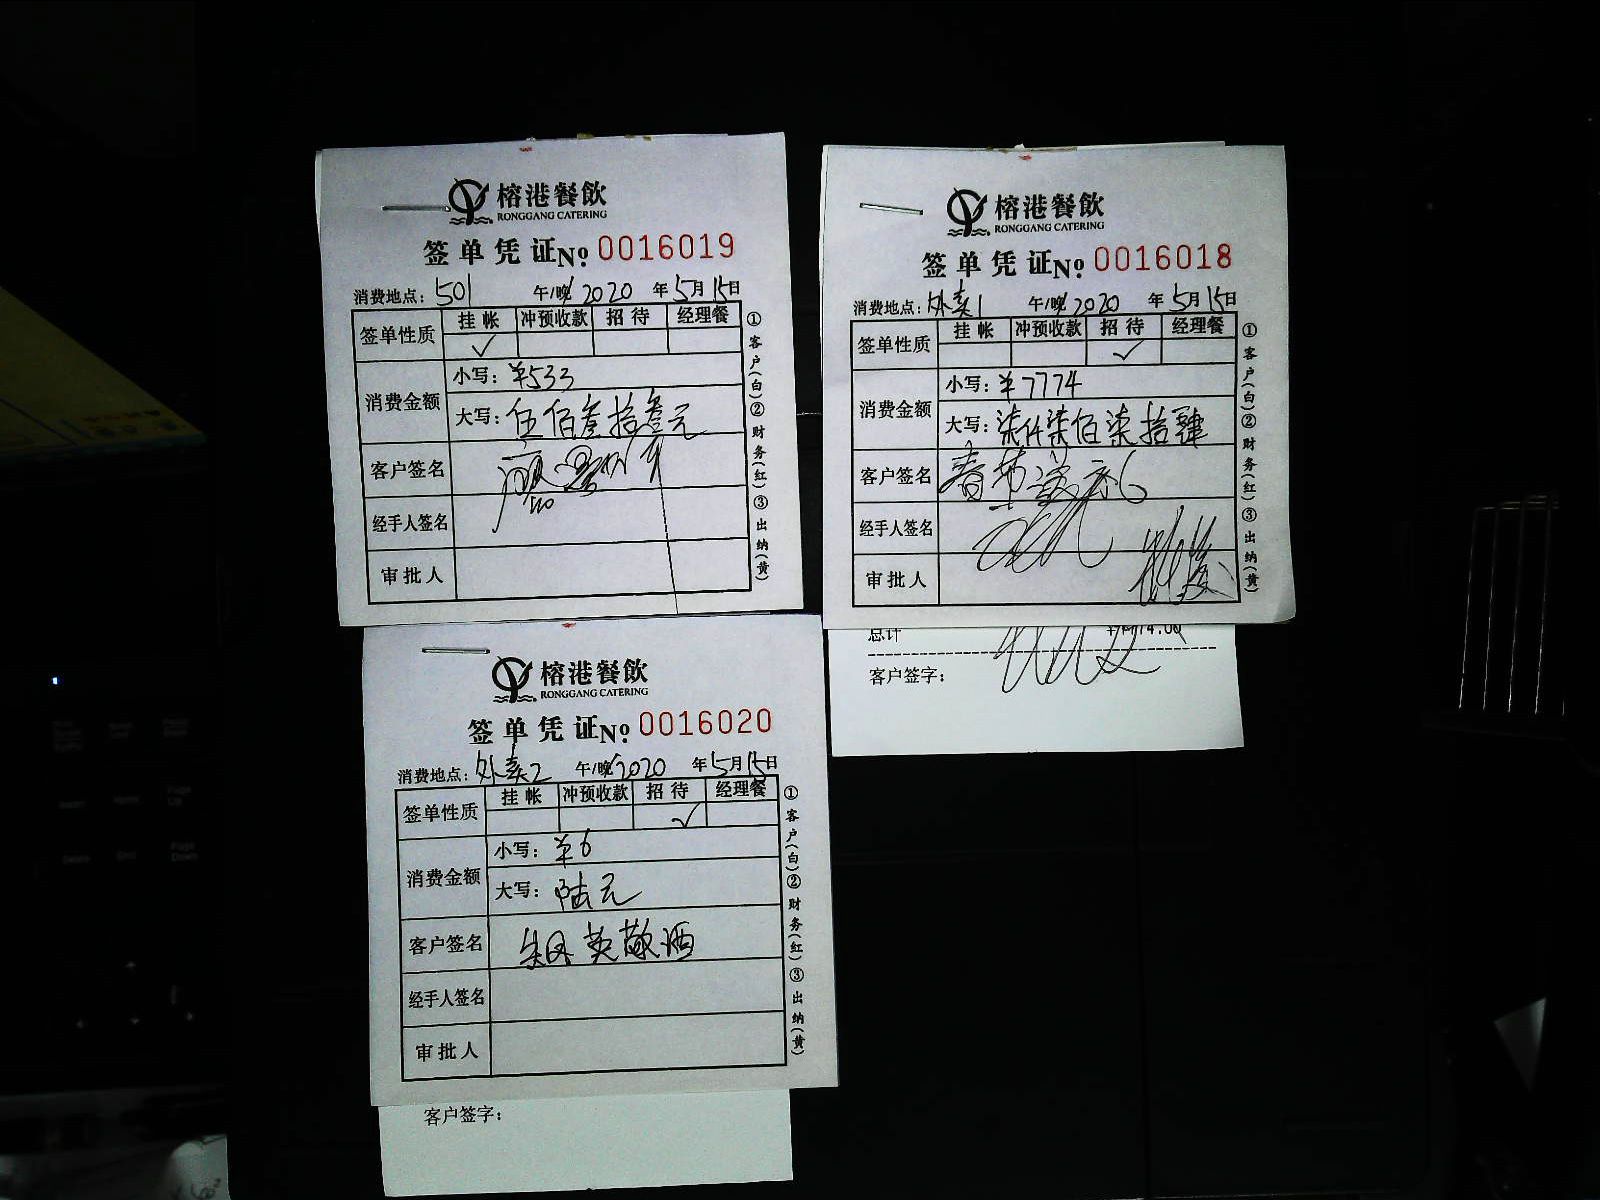 榕港餐飲
RONGGANG CATERING
签单凭证 No. 0016019
消费地点：501 午/晚 2020 年 5月 15日
签单性质 挂帐 冲预收款 招待 经理餐
✓
消费金额 小写：¥533
大写：伍佰叁拾叁元
客户签名
经手人签名
审批人
①客户(白)②财务(红)③出纳(黄)
榕港餐飲
RONGGANG CATERING
签单凭证 No. 0016018
消费地点：外卖1 午/晚 2020 年 5月 15日
签单性质 挂帐 冲预收款 招待 经理餐
✓
消费金额 小写：¥7774
大写：柒仟柒佰柒拾肆
客户签名 春节
经手人签名
审批人
①客户(白)②财务(红)③出纳(黄)
总计
客户签字：
榕港餐飲
RONGGANG CATERING
签单凭证 No. 0016020
消费地点：外卖2 午/晚 2020 年 5月 15日
签单性质 挂帐 冲预收款 招待 经理餐
✓
消费金额 小写：¥6
大写：陆元
客户签名 英敬酒
经手人签名
审批人
①客户(白)②财务(红)③出纳(黄)
客户签字：